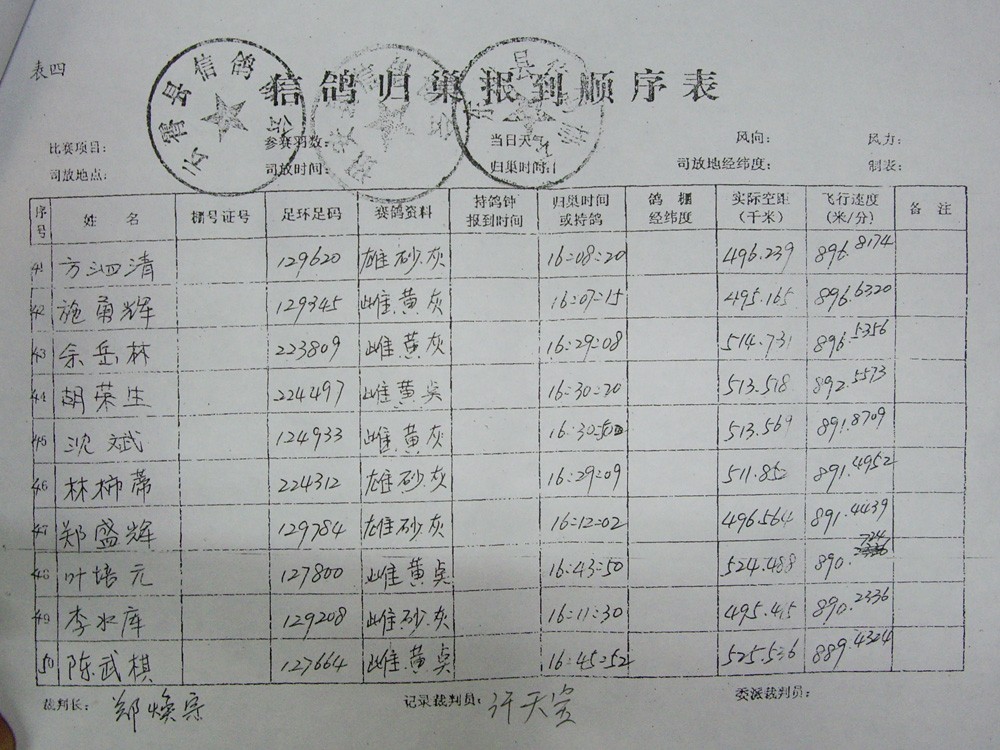 表四
信鸽归巢报到顺序表
云霄县信鸽协会
比赛项目: 参赛羽数: 当日天气: 风向: 风力:
司放地点: 司放时间: 归巢时间: 司放地经纬度: 制表:
序号 姓名 棚号证号 足环足码 赛鸽资料 持鸽钟报到时间 归巢时间或持鸽 鸽棚经纬度 实际空距(千米) 飞行速度(米/分) 备注
41 方泗清 129620 雄砂灰 16:08:20 496.239 896.8174
42 施勇辉 129345 雌黄灰 16:07:15 495.165 896.6320
43 余岳林 223809 雌黄灰 16:29:08 514.731 896.5356
44 胡荣生 224497 雌黄吴 16:30:20 513.518 892.5573
45 沈斌 124933 雌黄灰 16:30:50 513.569 891.8709
46 林柿蒂 224312 雄砂灰 16:29:09 511.852 891.4952
47 郑盛辉 129784 雄砂灰 16:12:02 496.564 891.4439
48 叶培元 127800 雌黄吴 16:43:50 524.488 890.724
49 李水库 129208 雌砂灰 16:11:30 495.415 890.2336
50 陈武棋 127664 雌黄吴 16:45:52 525.536 889.4324
裁判长: 郑焕宗 记录裁判员: 许天宝 委派裁判员: